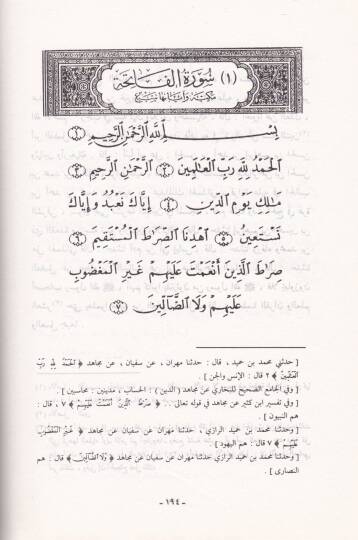 (١) سُورَةُ الفَاتِحَة
مكية وآياتها سبع
بِسْمِ اللَّهِ الرَّحْمَٰنِ الرَّحِيمِ ①
الْحَمْدُ لِلَّهِ رَبِّ الْعَالَمِينَ ② الرَّحْمَٰنِ الرَّحِيمِ ③
مَالِكِ يَوْمِ الدِّينِ ④ إِيَّاكَ نَعْبُدُ وَإِيَّاكَ
نَسْتَعِينُ ⑤ اهْدِنَا الصِّرَاطَ الْمُسْتَقِيمَ ⑥
صِرَاطَ الَّذِينَ أَنْعَمْتَ عَلَيْهِمْ غَيْرِ الْمَغْضُوبِ
عَلَيْهِمْ وَلَا الضَّالِّينَ ⑦
[ حدثني محمد بن حميد ، قال : حدثنا مهران ، عن سفيان ، عن مجاهد ﴿ الْحَمْدُ لِلَّهِ رَبِّ
الْعَالَمِينَ ﴾ ٢ قال : الإنس والجن ] .
[ وفي الجامع الصحيح للبخاري عن مجاهد ( الدين ) : الحساب ، مدينين : محاسبين ]
[ وفي تفسير ابن كثير عن مجاهد في قوله تعالى .. ﴿ صِرَاطَ الَّذِينَ أَنْعَمْتَ عَلَيْهِمْ ﴾ ٧ ، قال :
هم النبيون .
[ وحدثنا محمد بن حميد الرازي ، حدثنا مهران عن سفيان عن مجاهد ﴿ غَيْرِ الْمَغْضُوبِ
عَلَيْهِمْ ﴾ ٧ قال : هم اليهود ] .
[ وحدثنا محمد بن حميد الرازي حدثنا مهران عن سفيان عن مجاهد ﴿ وَلَا الضَّالِّينَ ﴾ قال : هم
النصارى ] .
- ١٩٤ -